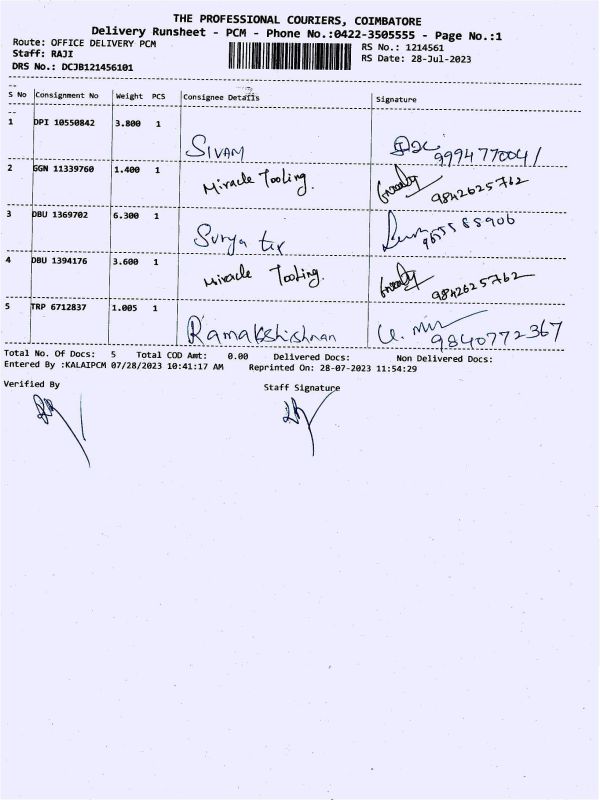 THE PROFESSIONAL COURIERS, COIMBATORE
Delivery Runsheet - PCM - Phone No.:0422-3505555 - Page No.:1
Route: OFFICE DELIVERY PCM
RS No.: 1214561
Staff: RAJI
RS Date: 28-Jul-2023
DRS No.: DCJB121456101
S No Consignment No Weight PCS Consignee Details Signature
1 DPI 10550842 3.800 1
SIVAM 9994770041
2 GGN 11339760 1.400 1
Miracle Tooling. 9842625762
3 DBU 1369702 6.300 1
Surya 9655585906
4 DBU 1394176 3.600 1
Miracle Tooling. 9842625762
5 TRP 6712837 1.005 1
Ramakshishnan 9840772367
Total No. Of Docs: 5 Total COD Amt: 0.00 Delivered Docs: Non Delivered Docs:
Entered By :KALAIPCM 07/28/2023 10:41:17 AM Reprinted On: 28-07-2023 11:54:29
Verified By Staff Signature